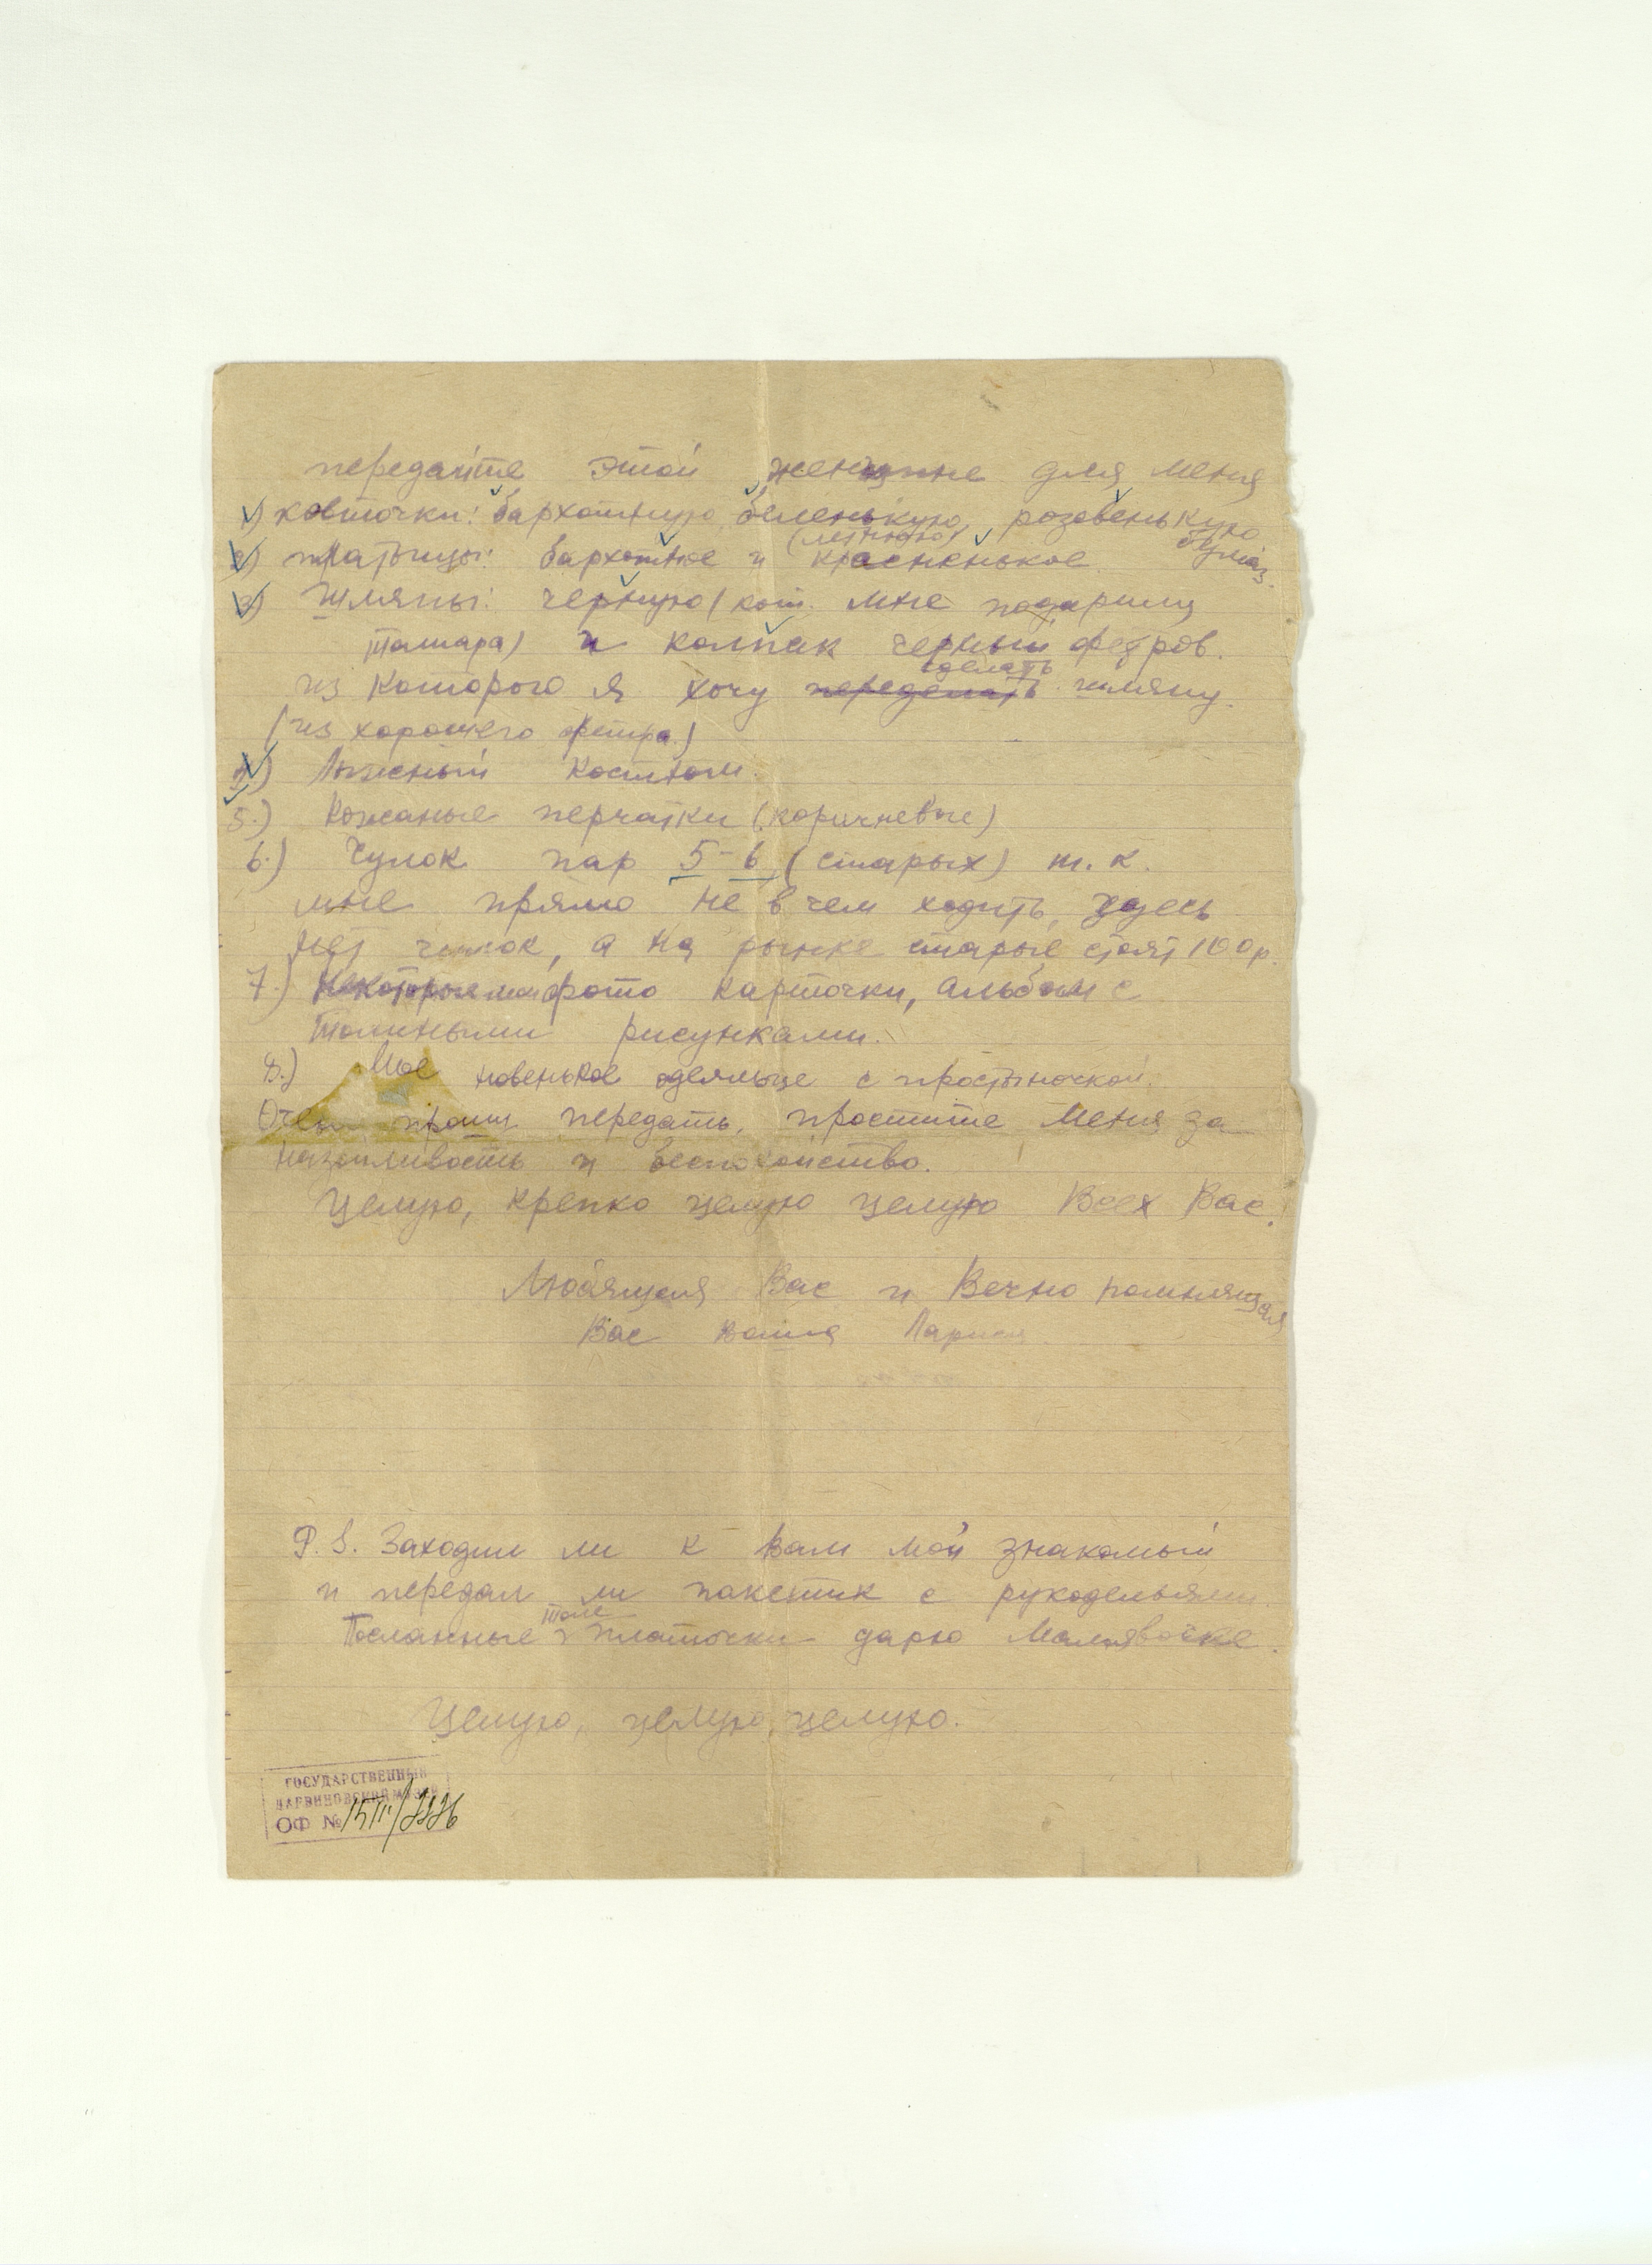 передайте этой женщине для меня
1) кофточки: бархотную, беленькую, розовенькую
(летнюю) бумаз.
2) платьицы: бархотное и красненькое.
3) Шляпы: черную (кот. мне подарила
Тамара) и колпак черный фетров.
сделать
из которого я хочу переделать шляпу.
(из хорошего фетра.)
4.) Лыжный костюм.
5.) Кожаные перчатки (коричневые)
6.) Чулок пар 5-6 (старых) т. к.
мне прямо не в чем ходить, здесь
нет чулок, а на рынке старые стоят 100 р.
7.) Некоторые мои фото карточки, альбом с
Томиными рисунками.
8.) Мое новенькое одеяльце с простыночкой.
Очень прошу передать, простите меня за
назойливость и беспокойство.
Целую, крепко целую целую Всех Вас.
Любящая Вас и Вечно помнящая
Вас ваша Лариса
P. S. Заходил ли к вам мой знакомый
и передал ли пакетик с рукодельями.
Посланные платочки дарю Малявочке.
Целую, целую, целую.
ГОСУДАРСТВЕННЫЙ
ДАРВИНОВСКИЙ МУЗЕЙ
ОФ №